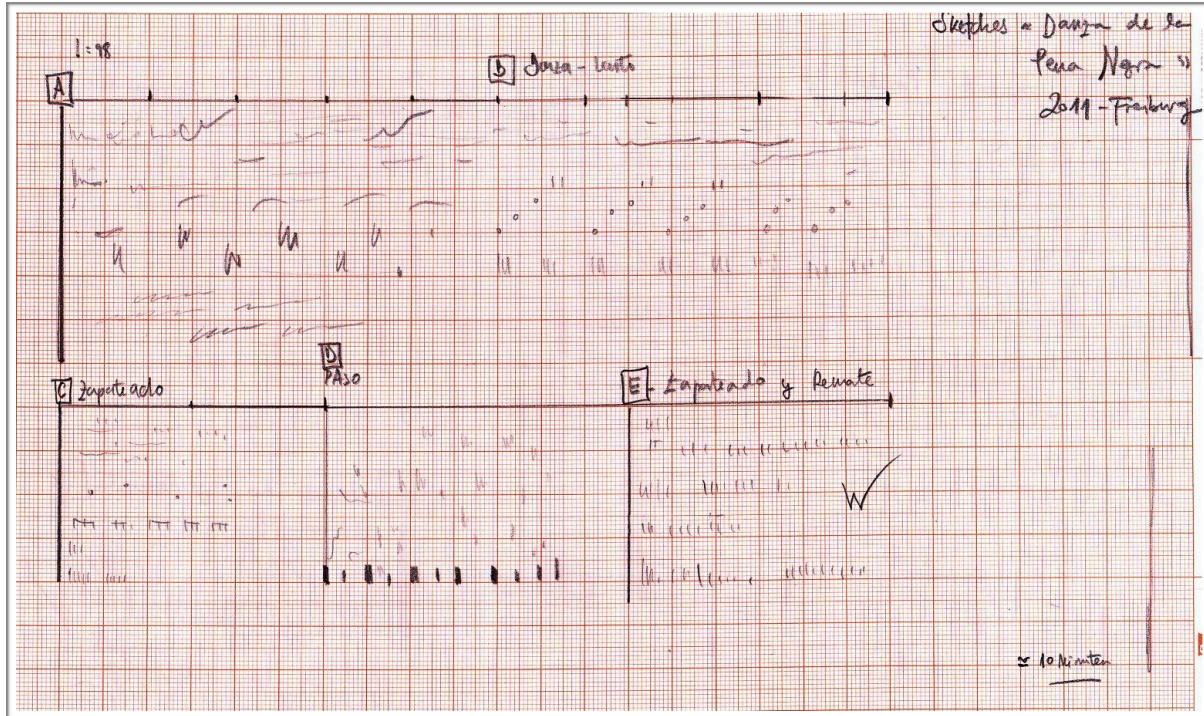 Sketches « Danza de la
Pena Negra »
2011 - Freiburg
A
B
C Zapateado
D
PASO
E - Zapateado y Remate
≃ 10 Minuten